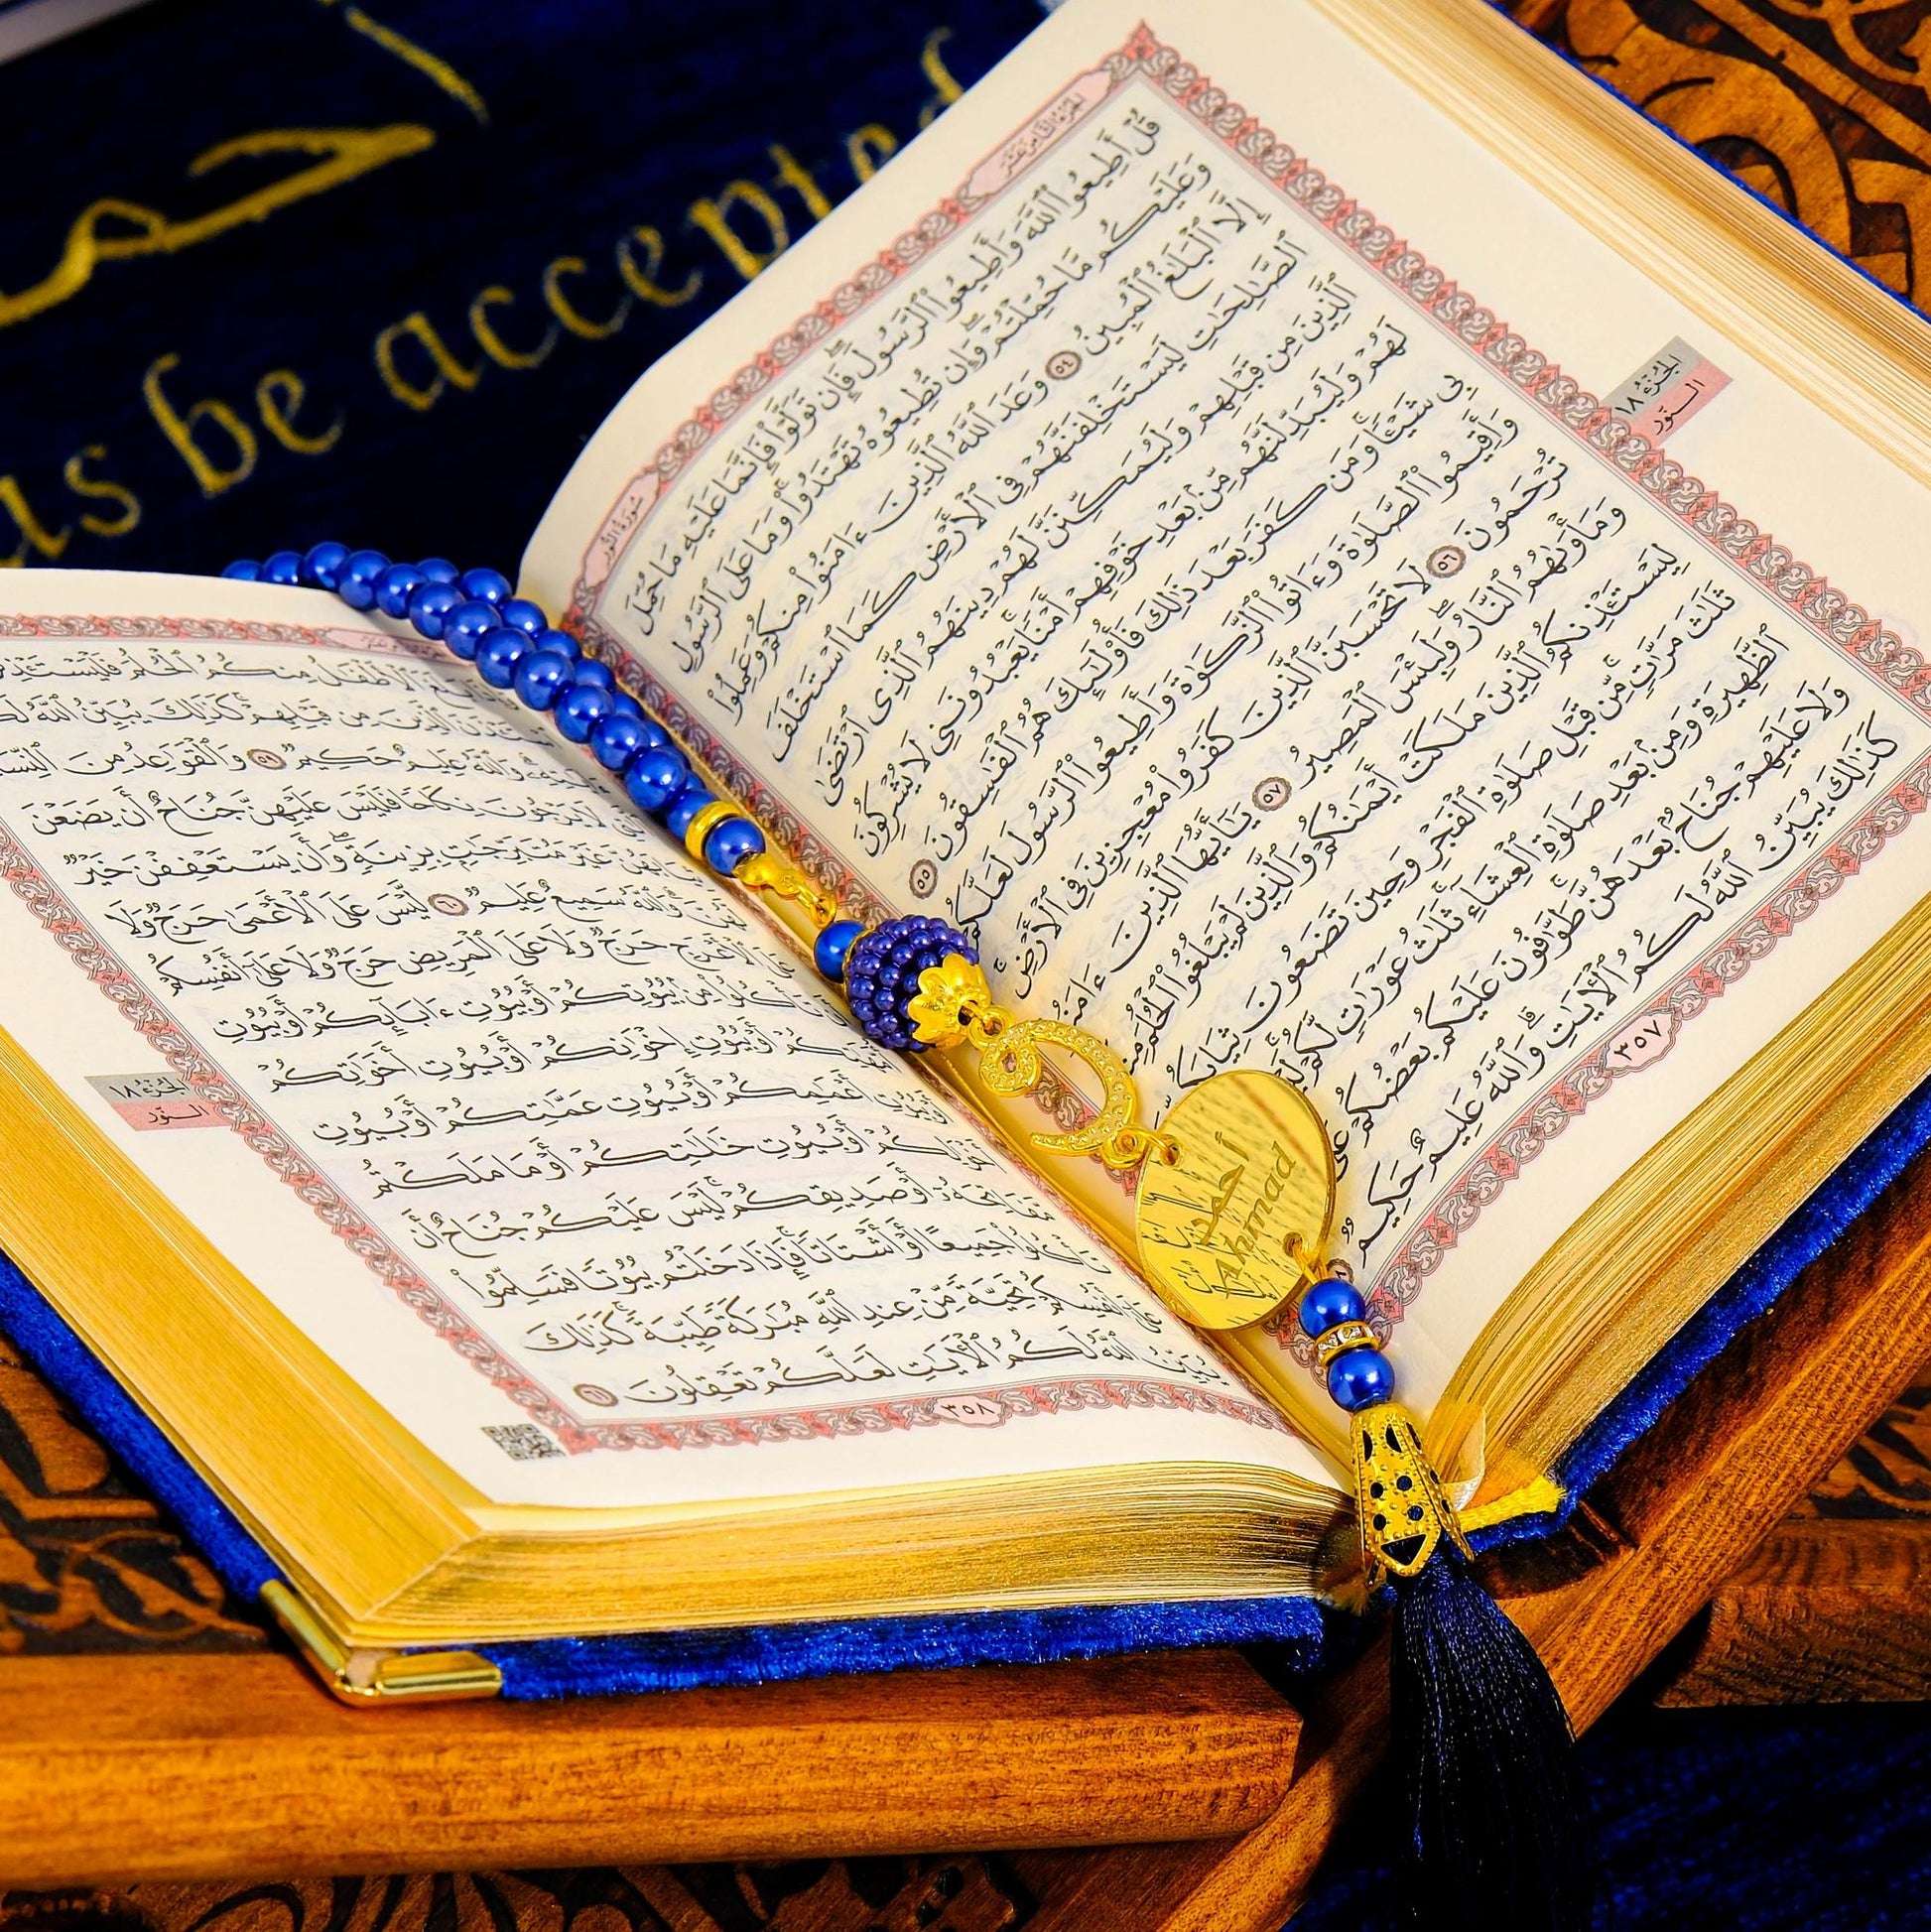 be accepted
الجزء الثامن عشر
سورة النور
قُلْ أَطِيعُوا۟ ٱللَّهَ وَأَطِيعُوا۟ ٱلرَّسُولَ فَإِن تَوَلَّوْا۟ فَإِنَّمَا عَلَيْهِ مَا حُمِّلَ
وَعَلَيْكُم مَّا حُمِّلْتُمْ وَإِن تُطِيعُوهُ تَهْتَدُوا۟ وَمَا عَلَى ٱلرَّسُولِ
إِلَّا ٱلْبَلَٰغُ ٱلْمُبِينُ ٥٤ وَعَدَ ٱللَّهُ ٱلَّذِينَ ءَامَنُوا۟ مِنكُمْ وَعَمِلُوا۟
ٱلصَّٰلِحَٰتِ لَيَسْتَخْلِفَنَّهُمْ فِى ٱلْأَرْضِ كَمَا ٱسْتَخْلَفَ
ٱلَّذِينَ مِن قَبْلِهِمْ وَلَيُمَكِّنَنَّ لَهُمْ دِينَهُمُ ٱلَّذِى ٱرْتَضَىٰ
لَهُمْ وَلَيُبَدِّلَنَّهُم مِّنۢ بَعْدِ خَوْفِهِمْ أَمْنًا يَعْبُدُونَنِى لَا يُشْرِكُونَ
بِى شَيْـًٔا وَمَن كَفَرَ بَعْدَ ذَٰلِكَ فَأُو۟لَٰٓئِكَ هُمُ ٱلْفَٰسِقُونَ ٥٥
وَأَقِيمُوا۟ ٱلصَّلَوٰةَ وَءَاتُوا۟ ٱلزَّكَوٰةَ وَأَطِيعُوا۟ ٱلرَّسُولَ لَعَلَّكُمْ
تُرْحَمُونَ ٥٦ لَا تَحْسَبَنَّ ٱلَّذِينَ كَفَرُوا۟ مُعْجِزِينَ فِى ٱلْأَرْضِ
وَمَأْوَىٰهُمُ ٱلنَّارُ وَلَبِئْسَ ٱلْمَصِيرُ ٥٧ يَٰٓأَيُّهَا ٱلَّذِينَ
لِيَسْتَـْٔذِنكُمُ ٱلَّذِينَ مَلَكَتْ أَيْمَٰنُكُمْ وَٱلَّذِينَ لَمْ يَبْلُغُوا۟ ٱلْحُلُمَ
ثَلَٰثَ مَرَّٰتٍ مِّن قَبْلِ صَلَوٰةِ ٱلْفَجْرِ وَحِينَ تَضَعُونَ ثِيَابَكُم
ٱلظَّهِيرَةِ وَمِنۢ بَعْدِ صَلَوٰةِ ٱلْعِشَآءِ ثَلَٰثُ عَوْرَٰتٍ لَّكُمْ
وَلَا عَلَيْهِمْ جُنَاحٌۢ بَعْدَهُنَّ طَوَّٰفُونَ عَلَيْكُم بَعْضُكُمْ عَلَىٰ
كَذَٰلِكَ يُبَيِّنُ ٱللَّهُ لَكُمُ ٱلْءَايَٰتِ وَٱللَّهُ عَلِيمٌ حَكِيمٌ
٣٥٧
الجزء ١٨
النور
ٱلْأَطْفَٰلُ مِنكُمُ ٱلْحُلُمَ
ٱلَّذِينَ مِن قَبْلِهِمْ كَذَٰلِكَ يُبَيِّنُ ٱللَّهُ
وَٱللَّهُ عَلِيمٌ حَكِيمٌ ٥٩ وَٱلْقَوَٰعِدُ مِنَ
لَا يَرْجُونَ نِكَاحًا فَلَيْسَ عَلَيْهِنَّ جُنَاحٌ أَن يَضَعْنَ
غَيْرَ مُتَبَرِّجَٰتٍۭ بِزِينَةٍ وَأَن يَسْتَعْفِفْنَ خَيْرٌ
وَٱللَّهُ سَمِيعٌ عَلِيمٌ ٦٠ لَّيْسَ عَلَى ٱلْأَعْمَىٰ حَرَجٌ وَلَا
عَلَى ٱلْأَعْرَجِ حَرَجٌ وَلَا عَلَى ٱلْمَرِيضِ حَرَجٌ وَلَا عَلَىٰٓ أَنفُسِكُمْ
مِنۢ بُيُوتِكُمْ أَوْ بُيُوتِ ءَابَآئِكُمْ أَوْ بُيُوتِ
أَوْ بُيُوتِ إِخْوَٰنِكُمْ أَوْ بُيُوتِ أَخَوَٰتِكُمْ
أَوْ بُيُوتِ أَعْمَٰمِكُمْ أَوْ بُيُوتِ عَمَّٰتِكُمْ أَوْ بُيُوتِ
أَوْ بُيُوتِ خَٰلَٰتِكُمْ أَوْ مَا مَلَكْتُم
مَّفَاتِحَهُۥٓ أَوْ صَدِيقِكُمْ لَيْسَ عَلَيْكُمْ جُنَاحٌ أَن
تَأْكُلُوا۟ جَمِيعًا أَوْ أَشْتَاتًا فَإِذَا دَخَلْتُم بُيُوتًا فَسَلِّمُوا۟
عَلَىٰٓ أَنفُسِكُمْ تَحِيَّةً مِّنْ عِندِ ٱللَّهِ مُبَٰرَكَةً طَيِّبَةً كَذَٰلِكَ
يُبَيِّنُ ٱللَّهُ لَكُمُ ٱلْءَايَٰتِ لَعَلَّكُمْ تَعْقِلُونَ ٦١
٣٥٨
الجزء ١٨
النور
أحمد
Ahmad